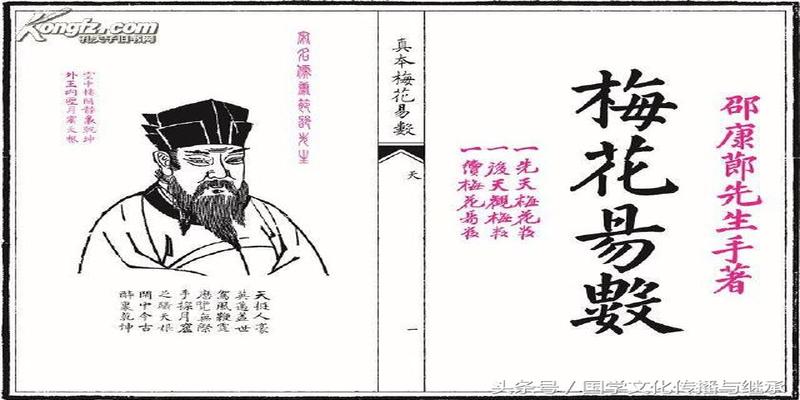 邵康節先生手著
梅花易數
一先天梅花数
一後天觀梅数
一價梅花易数
真本梅花易數
天
一
宋名儒康節邵先生
空中樓閣静裏乾坤
外王内聖月窟天根
天挺人豪
英邁蓋世
駕風鞭霆
歷覽無際
手探月窟
足躡天根
閒中今古
醉裏乾坤
Kongfz.com
孔夫子旧书网
头条号/国学文化传播与继承